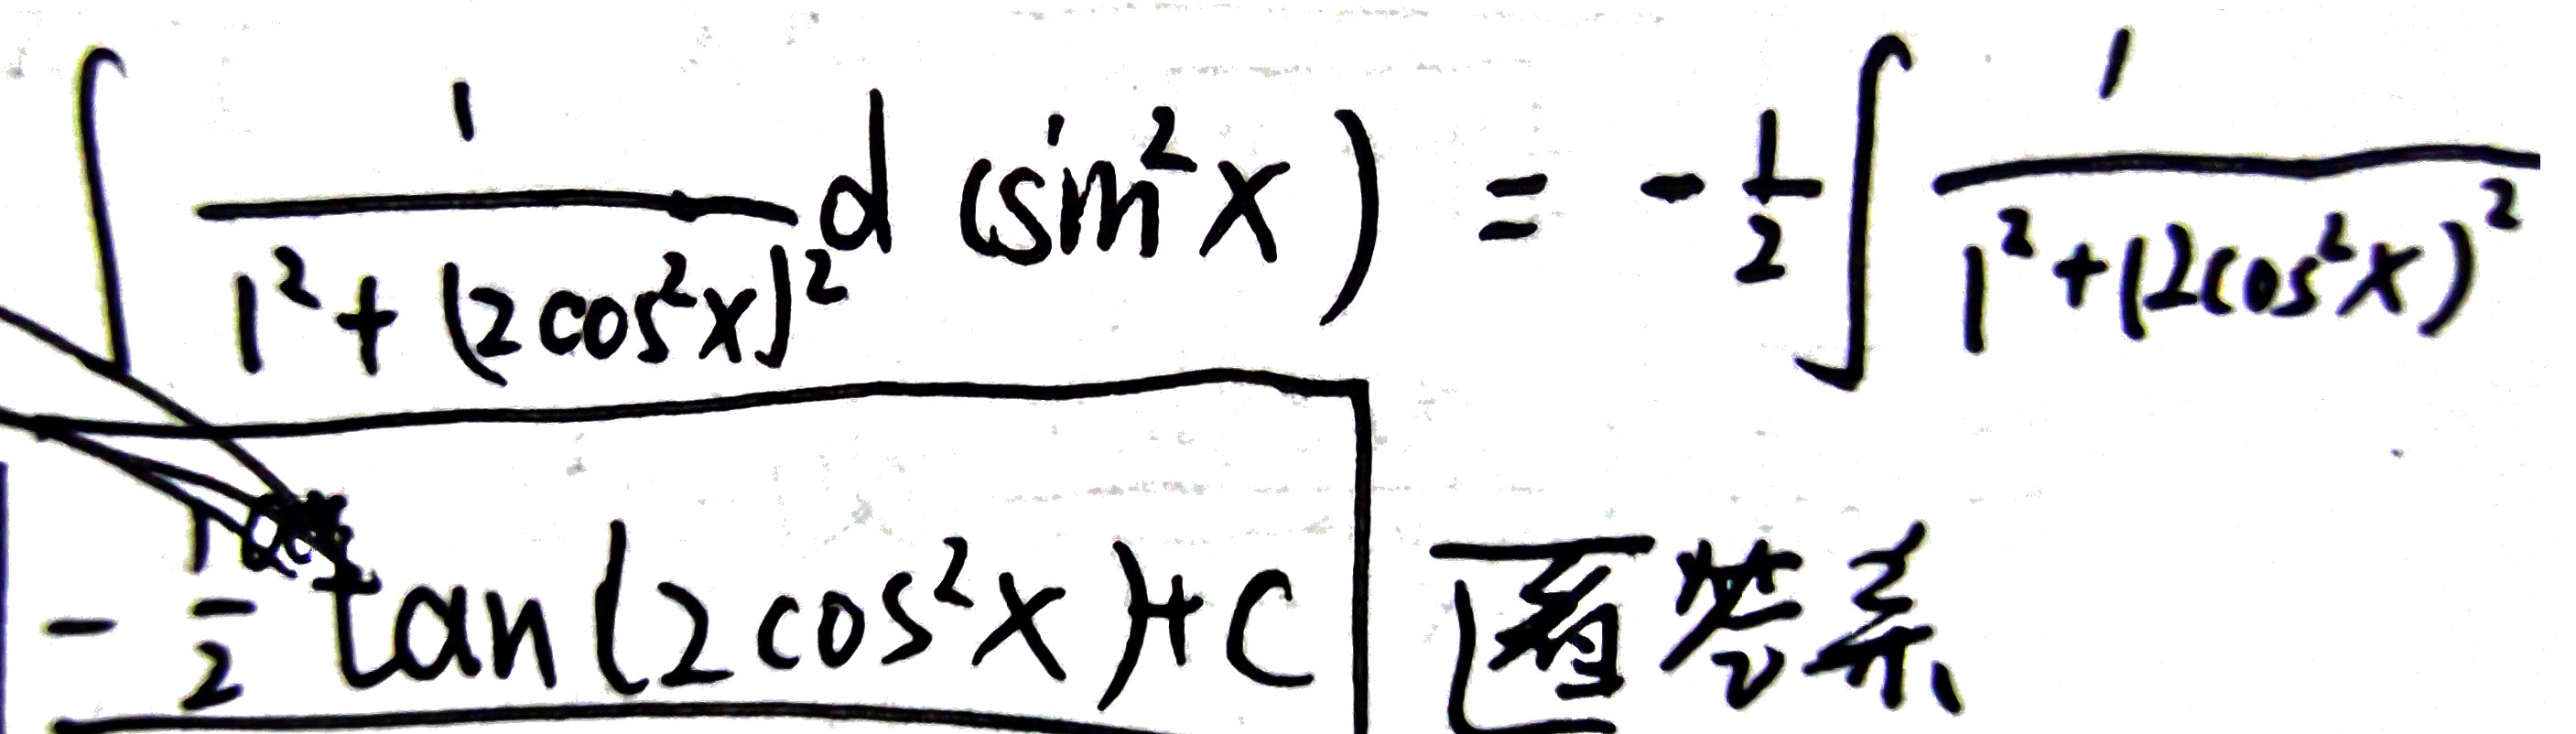 ∫ 1/(1²+(2cos²x)²) d(sin²x) = -1/2 ∫ 1/(1²+(2cos²x)²)
-1/2 tan(2cos²x)+C